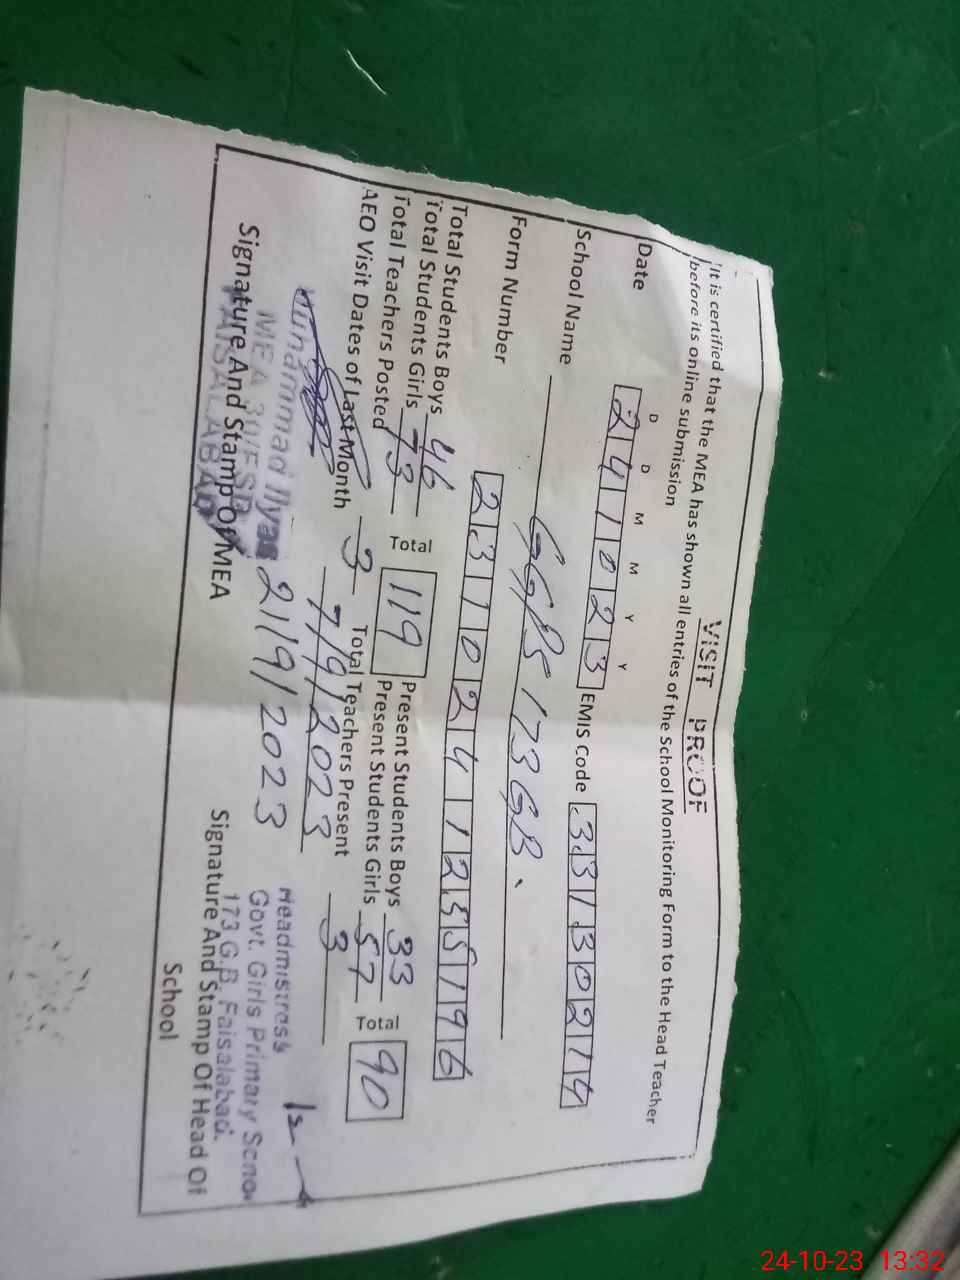 VISIT PROOF
"It is certified that the MEA has shown all entries of the School Monitoring Form to the Head Teacher
before its online submission
D D M M Y Y
Date 241023 EMIS Code 33130214
School Name GGPS 173 GB.
Form Number 2310241255196
Total Students Boys 46 Total 119 Present Students Boys 33 Total 90
Total Students Girls 73 Present Students Girls 57
Total Teachers Posted 3 Total Teachers Present 3
AEO Visit Dates of Last Month 7/9/2023
21/9/2023
Muhammad Ilyas
MEA 30/FSD
FAISALABAD
Signature And Stamp Of MEA
Headmistress
Govt. Girls Primary School
173 G.B. Faisalabad.
Signature And Stamp Of Head Of
School
24-10-23 13:32